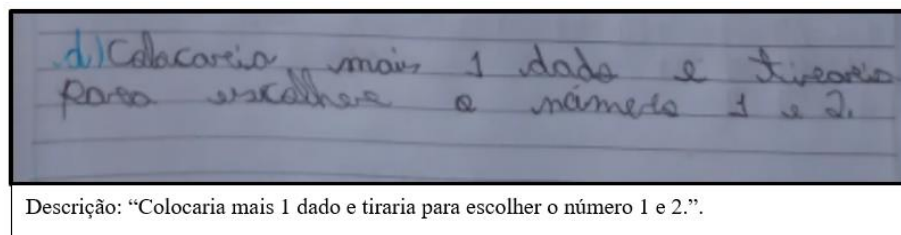 d) Colocaria mais 1 dado e tiraria
para escolher o número 1 e 2.
Descrição: “Colocaria mais 1 dado e tiraria para escolher o número 1 e 2.”.